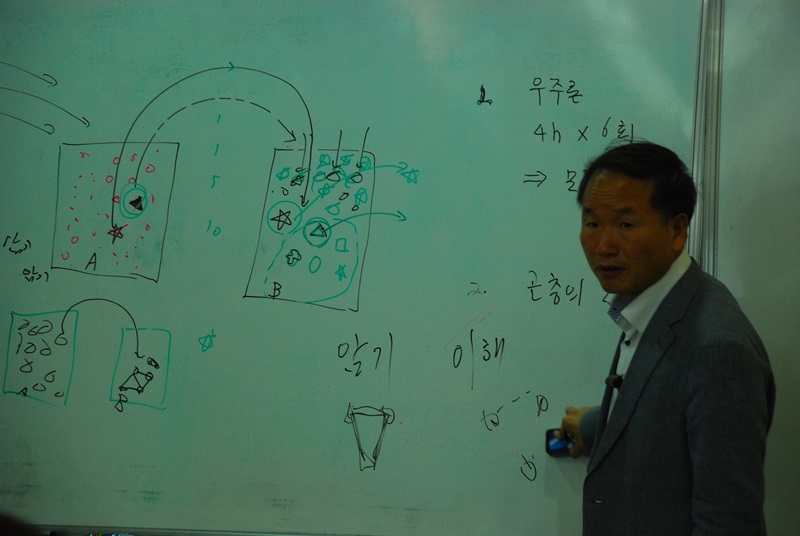 1. 우주론
4h x 6회
⇒
2. 곤충의
1
1
5
10
A
B
암기
암기
암기 이해